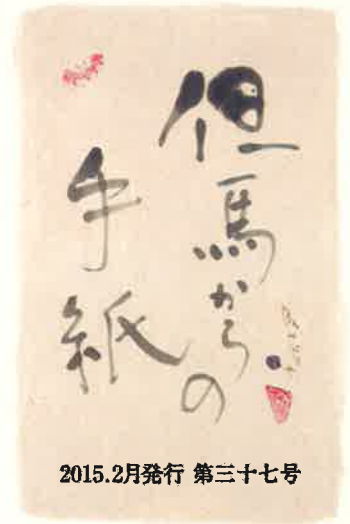 但馬からの
手紙
2015.2月発行 第三十七号